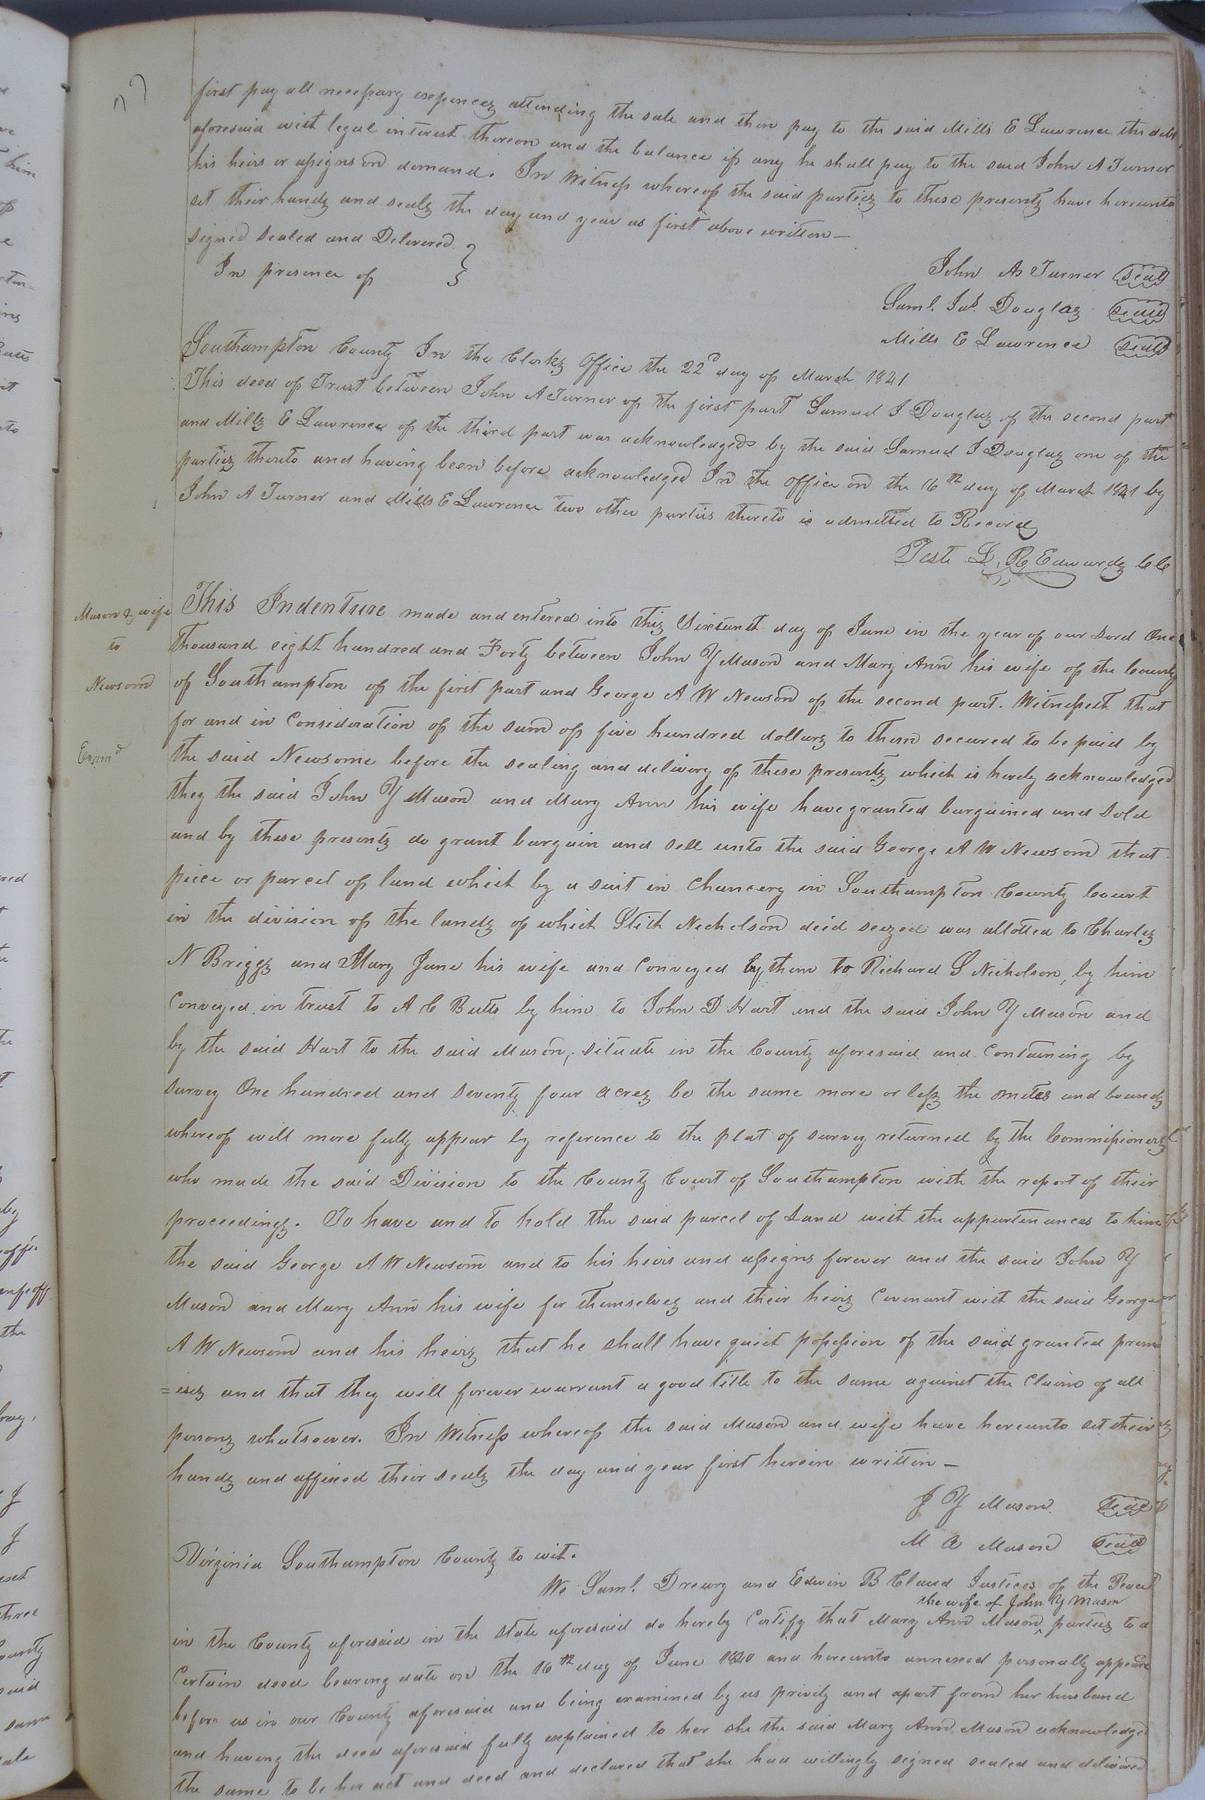 77
first pay all necessary expences attending the sale and then pay to the said Mills E Lawrence the debt
aforesaid with legal interest thereon and the balance if any he shall pay to the said John A Turner
his heirs or assigns on demand. In Witness whereof the said parties to these presents have hereunto
set their hands and seals the day and year as first above written —
Signed Sealed and Delivered }
In presence of }
John A Turner seal
Saml. Jas. Douglas seal
Mills E Lawrence seal
Southampton County In the Clerks Office the 22d day of March 1841
This deed of Trust between John A Turner of the first part Samuel J Douglas of the second part
and Mills E Lawrence of the third part was acknowledged by the said Samuel J Douglas one of the
parties thereto and having been before acknowledged In the office on the 16th day of March 1841 by
John A Turner and Mills E Lawrence two other parties thereto is admitted to Record
Teste L. R Edwards CC
Mason & wife
to
Newsom
Exmd
This Indenture made and entered into this Sixteenth day of June in the year of our Lord One
thousand eight hundred and Forty between John Y Mason and Mary Ann his wife of the County
of Southampton of the first part and George A W Newsom of the second part. Witnesseth that
for and in Consideration of the sum of five hundred dollars to them secured to be paid by
the said Newsome before the sealing and delivery of these presents which is hereby acknowledged
they the said John Y Mason and Mary Ann his wife have granted bargained and sold
and by these presents do grant bargain and sell unto the said George A W Newsom that
piece or parcel of land which by a suit in Chancery in Southampton County Court
in the division of the lands of which Stith Nicholson died seized was allotted to Charles
N Briggs and Mary Jane his wife and Conveyed by them to Richard S Nicholson, by him
Conveyed in trust to A C Butts by him to John D Hart and the said John Y Mason and
by the said Hart to the said Mason, situate in the County aforesaid and Containing by
survey One hundred and Seventy four acres be the same more or less the metes and bounds
whereof will more fully appear by reference to the plat of survey returned by the Commissioners
who made the said Division to the County Court of Southampton with the report of their
proceedings. To have and to hold the said parcel of Land with the appurtenances to him
the said George A W Newsom and to his heirs and assigns forever and the said John Y
Mason and Mary Ann his wife for themselves and their heirs Covenant with the said George
A W Newsom and his heirs that he shall have quiet possession of the said granted prem
=ises and that they will forever warrant a good title to the same against the Claims of all
persons whatsoever. In Witness whereof the said Mason and wife have hereunto set their
hands and affixed their seals the day and year first herein written —
J Y Mason seal
M A Mason seal
Virginia Southampton County to wit.
We Saml. Drewry and Edwin B Claud Justices of the Peace
the wife of John Y Mason
in the County aforesaid in the state aforesaid do hereby Certify that Mary Ann Mason ‸ parties to a
Certain deed bearing date on the 16th day of June 1840 and hereunto annexed personally appeared
before us in our County aforesaid and being examined by us privily and apart from her husband
and having the deed aforesaid fully explained to her she the said Mary Ann Mason acknowledged
the same to be her act and deed and declared that she had willingly signed sealed and delivered